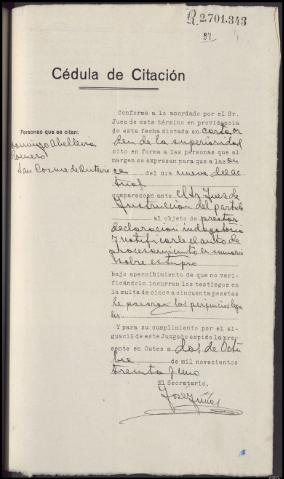 R.2.701.343
87
Cédula de Citación
Conforme a lo acordado por el Sr.
Juez de este término en providencia
de esta fecha dictada en carta or
den de la superioridad
cito en forma a las personas que al
margen se expresan para que a las on
ce del día nueve de ac
tual
comparezcan ante el Sr. Juez de
Instrucción del partido
al objeto de prestar
declaración indagatoria
y notificarle el auto de
procesamiento en sumario
sobre estupro
Personas que se citan:
Domingo Abelleira
Romero
San Cosme de Outeiro
Bajo apercibimiento de que no veri-
ficándolo incurren los testigos en
la multa de cinco a cincuenta pesetas
le pararán los perjuicios lega
les
Y para su cumplimiento por el al-
guacil de este Juzgado expido la pre-
sente en Outes a dos de Octu
bre de mil novecientos
treinta y uno
El Secretario,